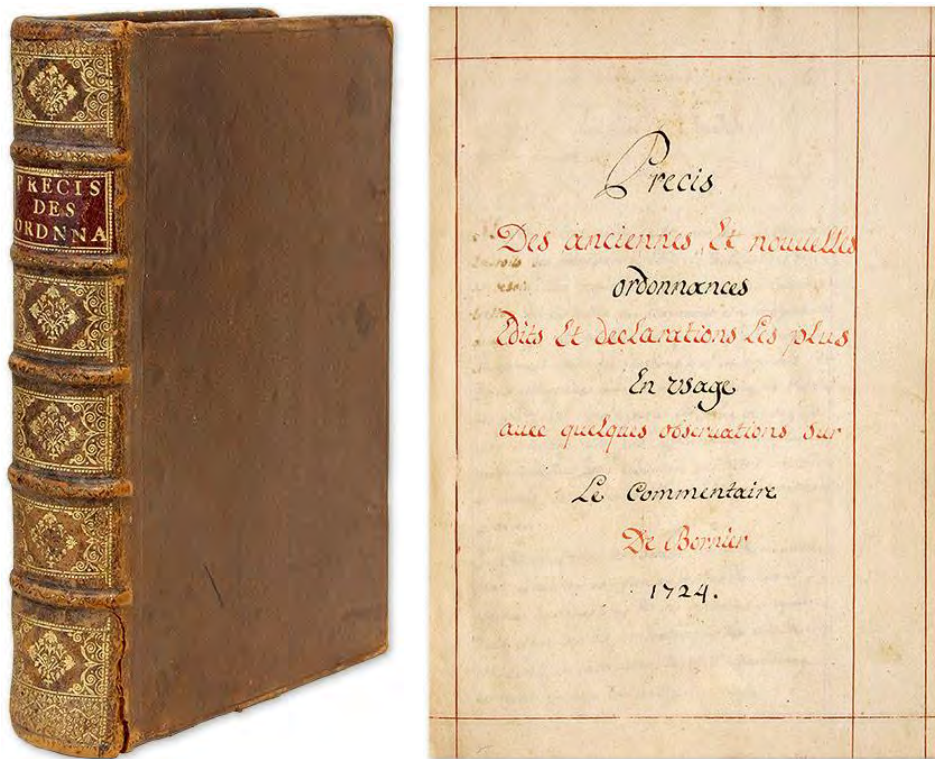 PRECIS
DES
ORDNNA
Precis
Des anciennes, Et nouuelles
ordonnances
Edits Et declarations Les plus
En vsage
auec quelques obseruations sur
Le Commentaire
De Bornier
1724.